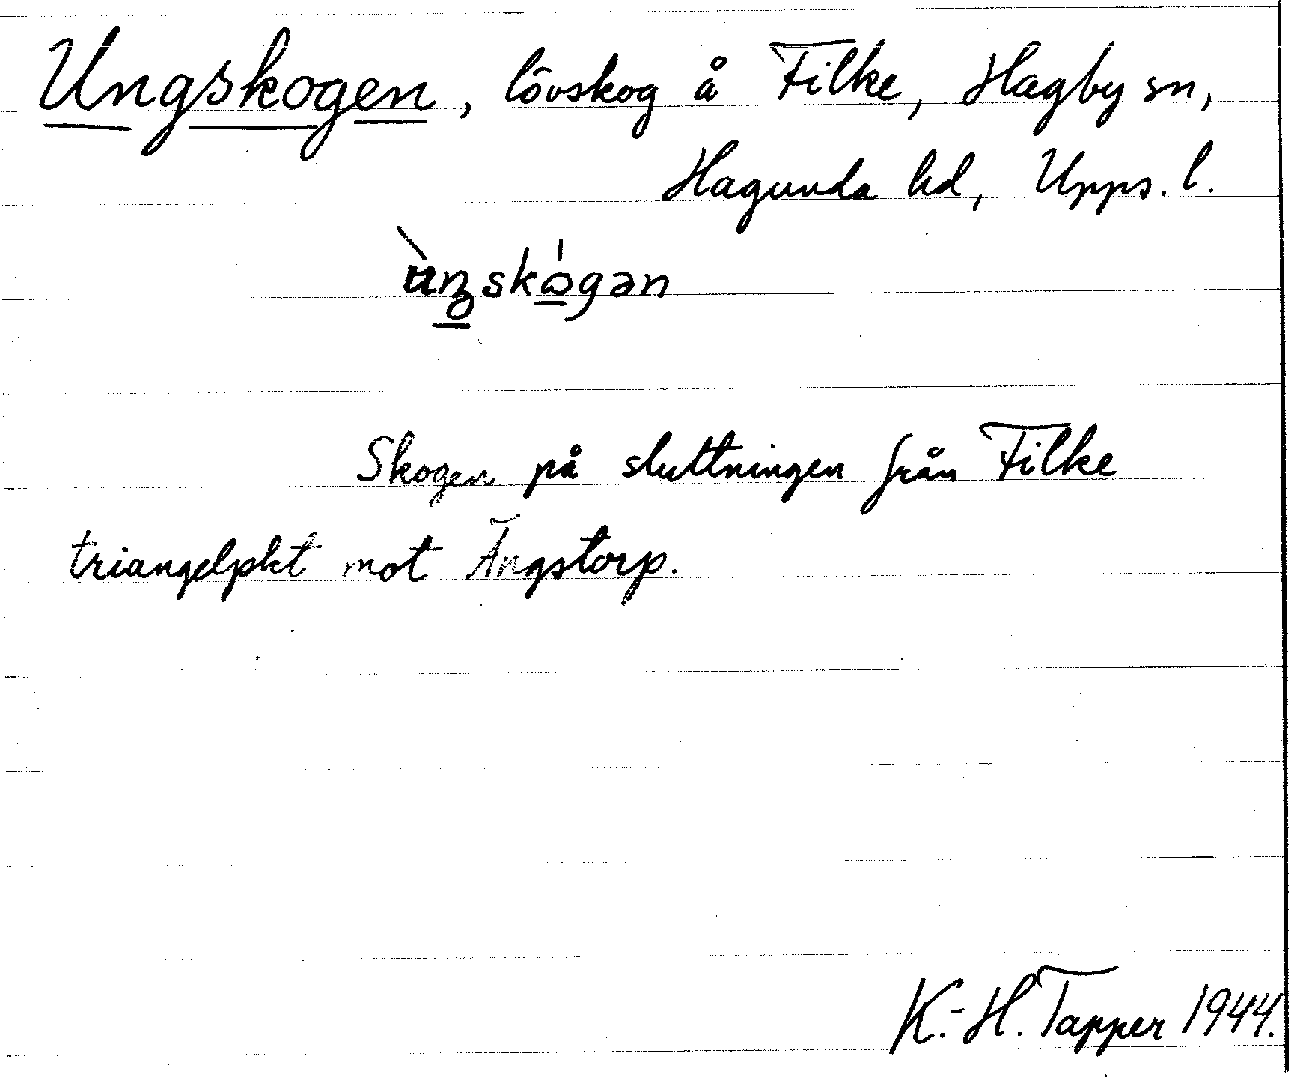 Ungskogen, lövskog å Filke, Hagby sn,
Hagunda hd, Upps. l.
ùŋskógən
Skogen på sluttningen från Filke
triangelpkt mot Ängstorp.
K.-H. Tapper 1944.